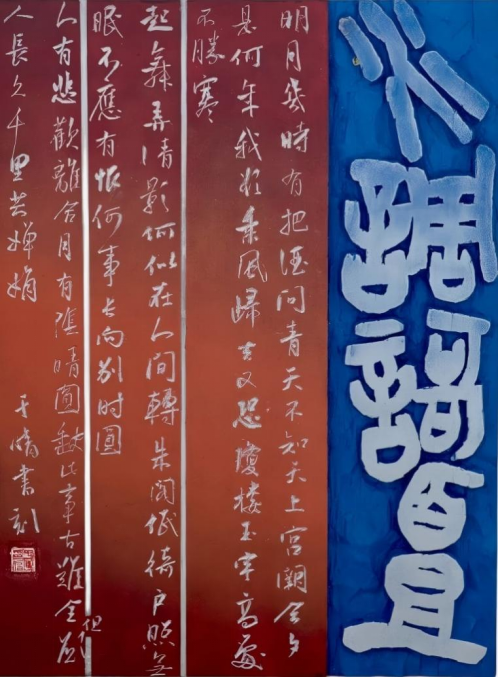 水調謌頭
明月幾時有把酒問青天不知天上宮闕今夕
是何年我欲乘風歸去又恐瓊樓玉宇高處
不勝寒
起舞弄清影何似在人間轉朱閣低綺戶照無
眠不應有恨何事長向別时圓
人有悲歡離合月有陰晴圓缺此事古難全但願
人長久千里共嬋娟
書刻